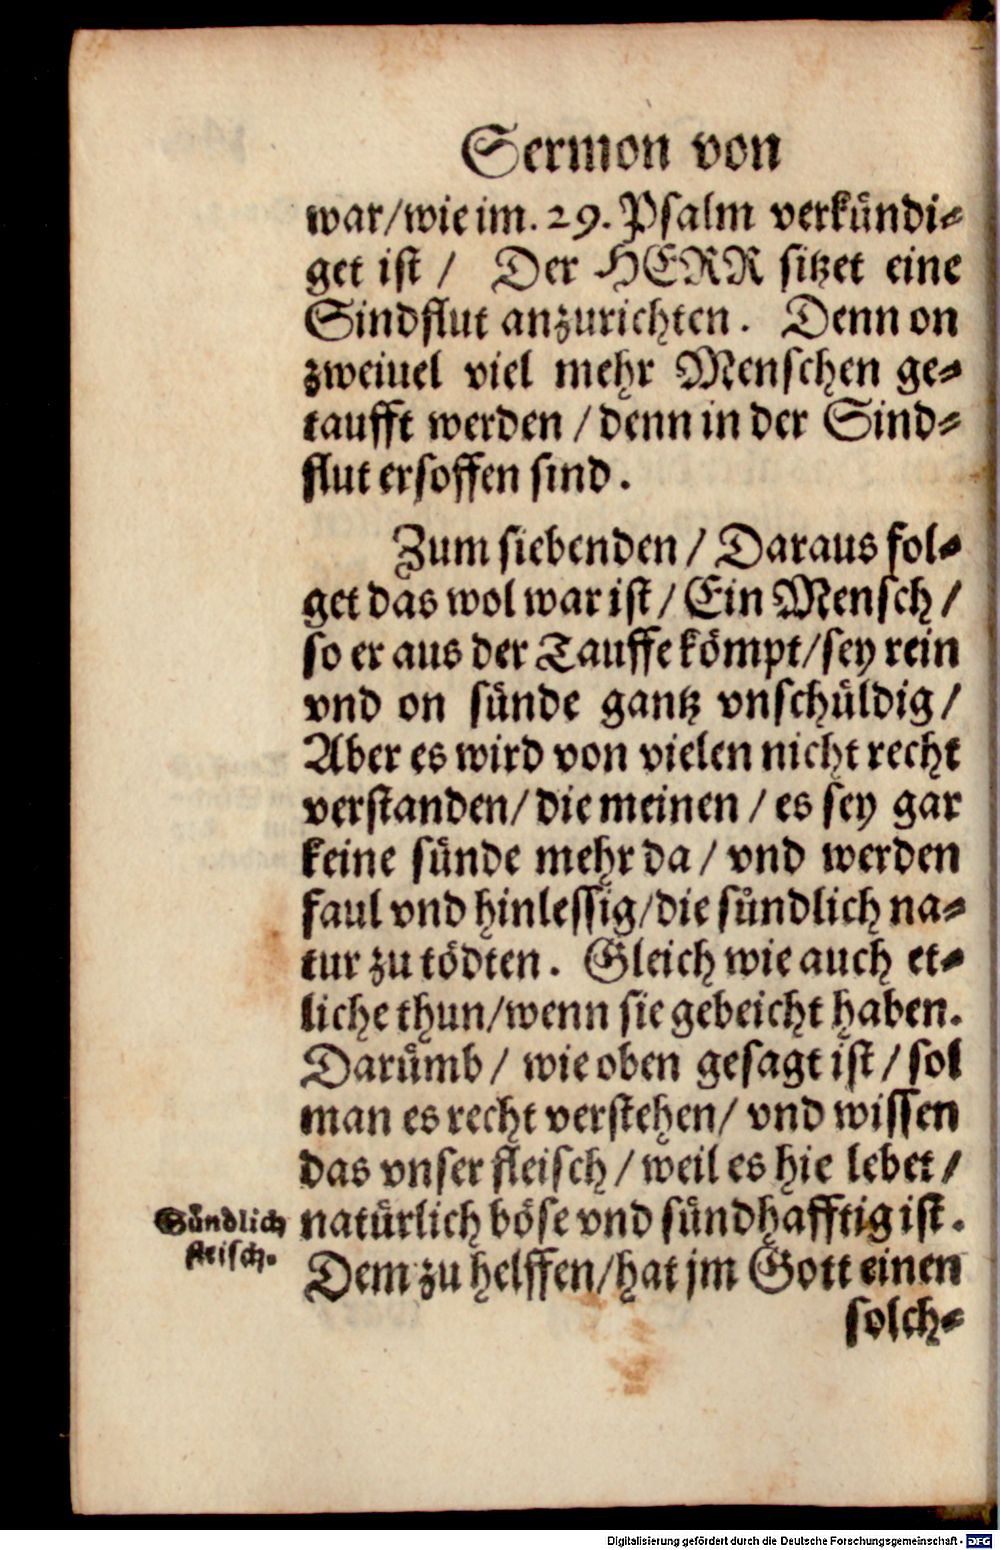 Sermon von
war/wie im. 29. Psalm verkündi-
get ist / Der HERR sitzet eine
Sindflut anzurichten. Denn on
zweiuel viel mehr Menschen ge-
taufft werden / denn in der Sind-
flut ersoffen sind.
Zum siebenden / Daraus fol-
get das wol war ist / Ein Mensch /
so er aus der Tauffe kömpt/sey rein
vnd on sünde gantz vnschüldig /
Aber es wird von vielen nicht recht
verstanden/ die meinen / es sey gar
keine sünde mehr da / vnd werden
faul vnd hinlessig/die sündlich na-
tur zu tödten. Gleich wie auch et-
liche thun/wenn sie gebeicht haben.
Darümb / wie oben gesagt ist / sol
man es recht verstehen/ vnd wissen
das vnser fleisch / weil es hie lebet /
Sündlich
fleisch.
natürlich böse vnd sündhafftig ist.
Dem zu helffen/hat jm Gott einen
solch-
Digitalisierung gefördert durch die Deutsche Forschungsgemeinschaft - DFG